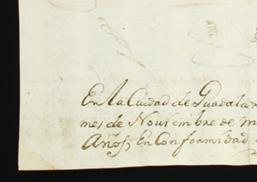 En la Ciudad de Guadala
mes de Noviembre de m
Años, En Conformidad